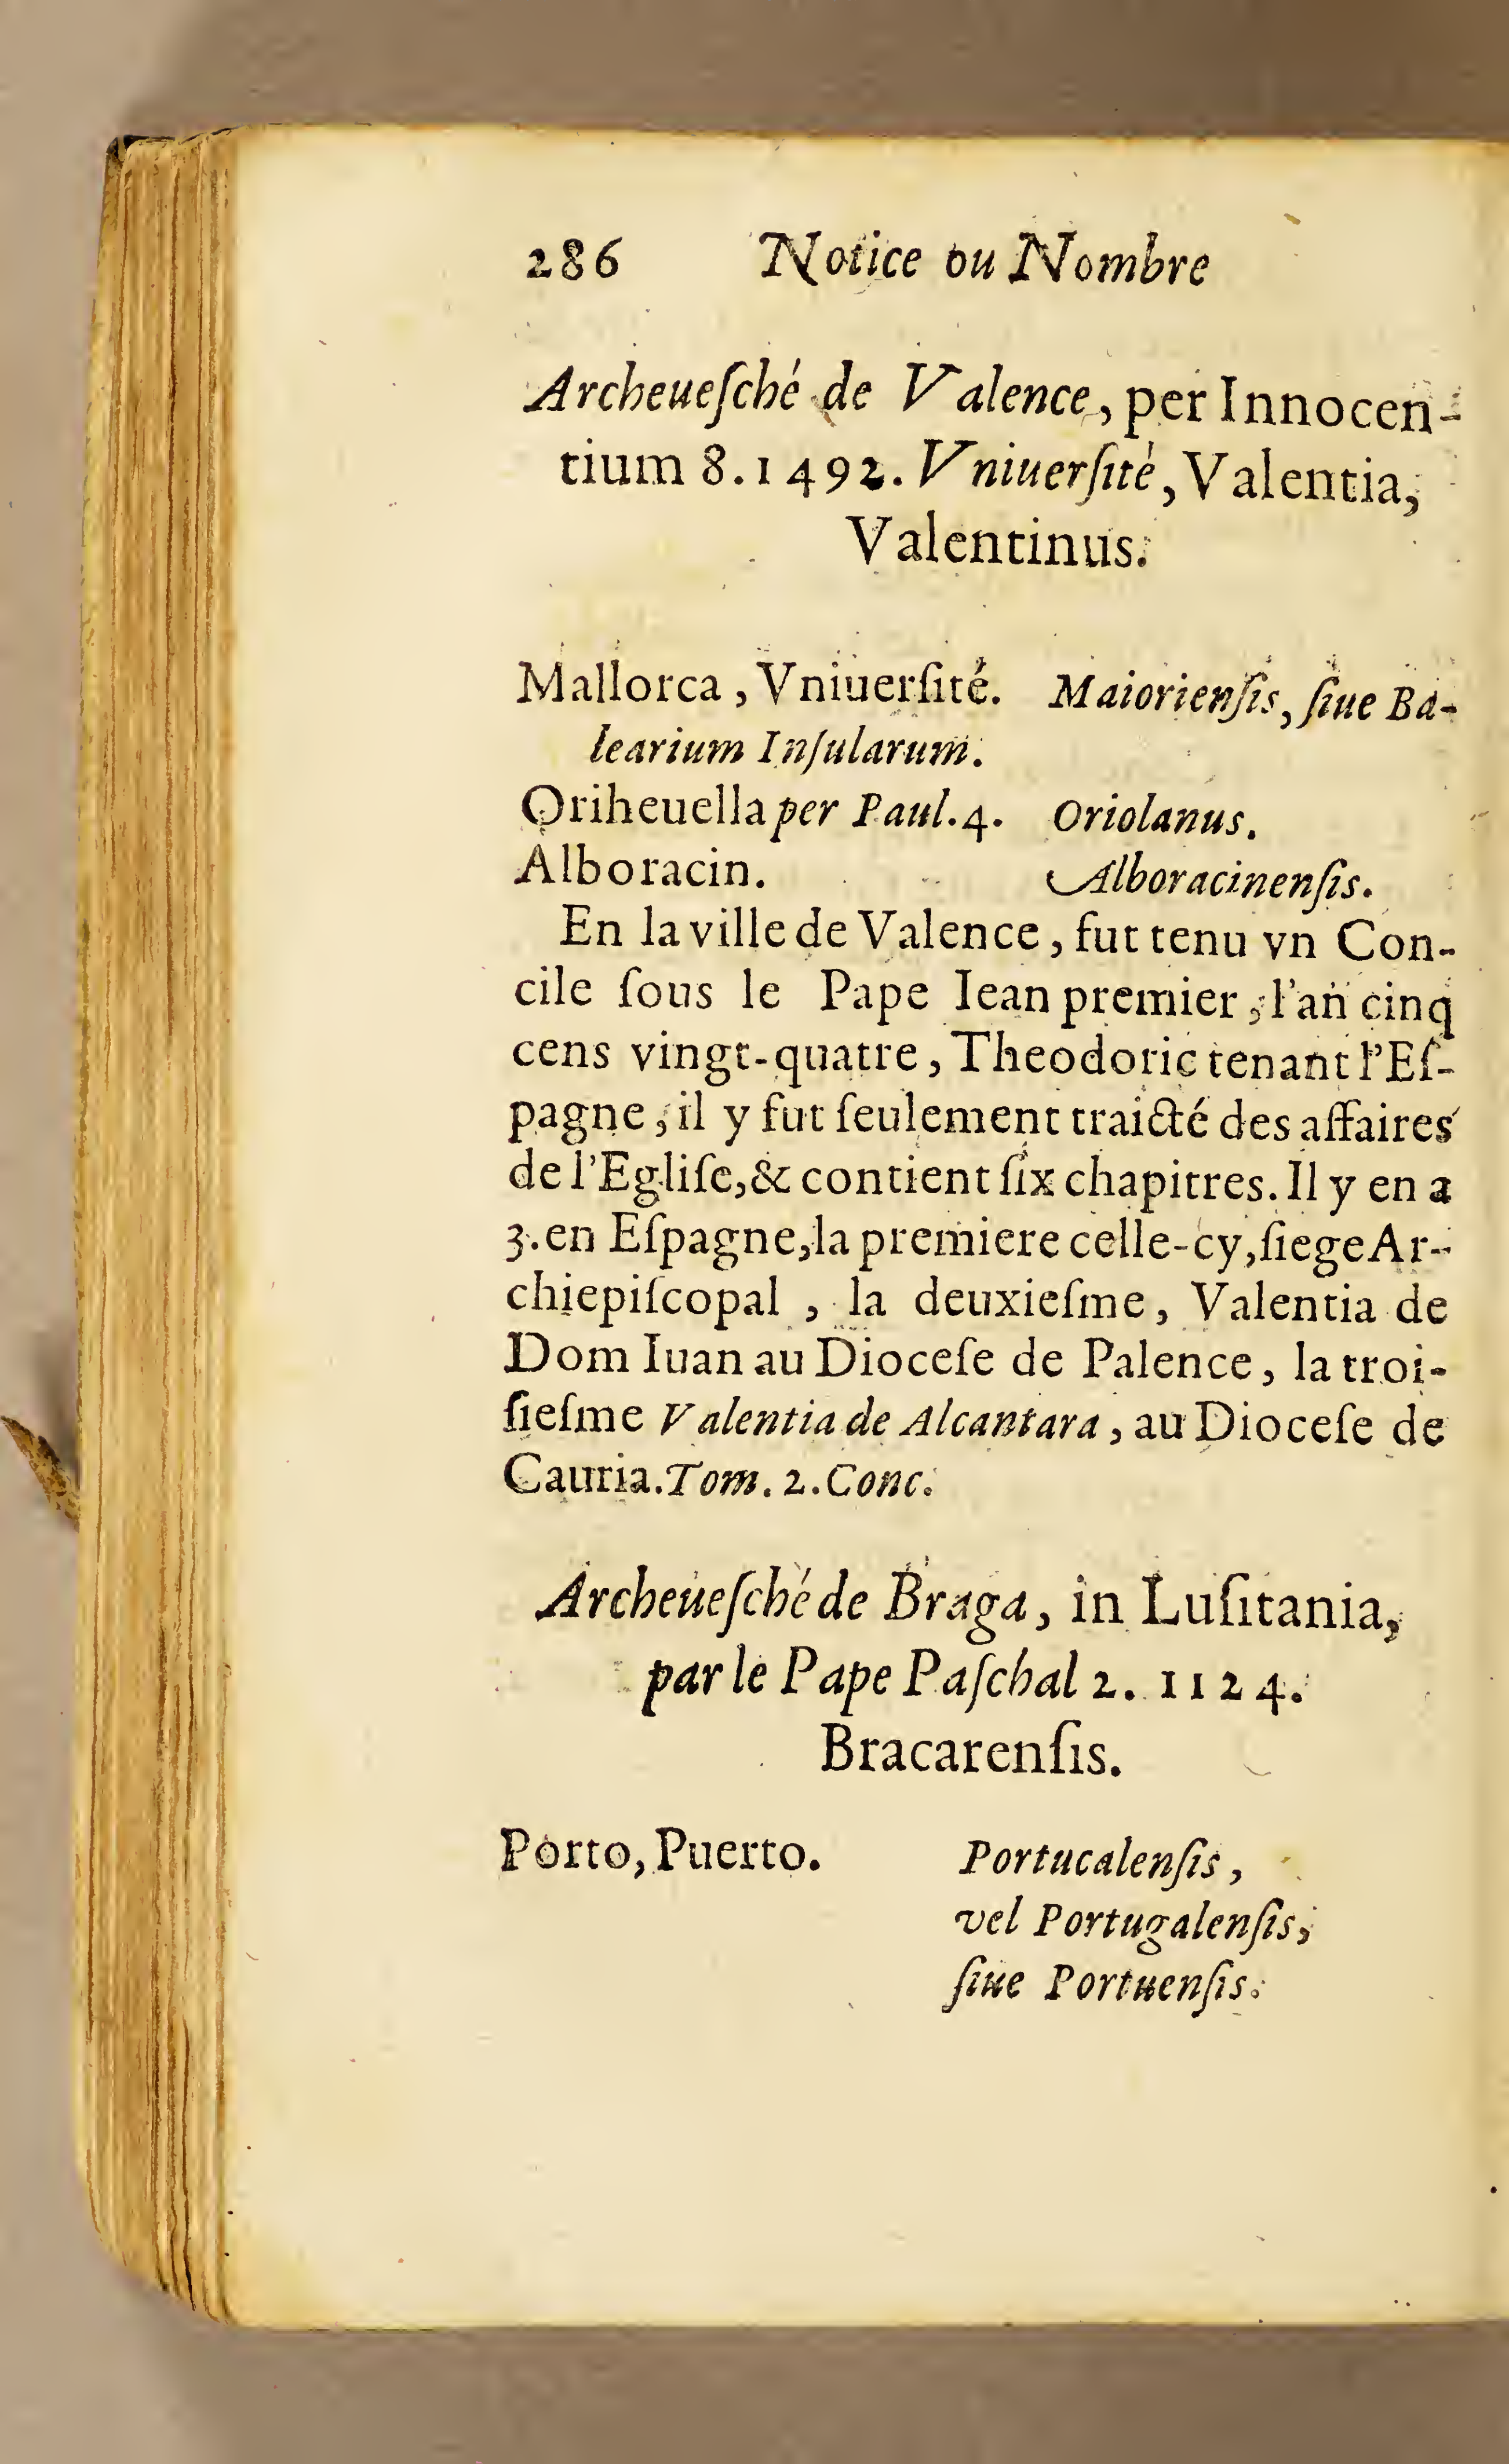 286 Notice ou Nombre
Archeueſché de Valence, per Innocen-
tium 8. 1492. Vniuerſité, Valentia,
Valentinus.
Mallorca, Vniuerſité. Maiorienſis, ſiue Ba-
learium Inſularum.
Oriheuella per Paul. 4. Oriolanus.
Alboracin. Alboracinenſis.
En la ville de Valence, fut tenu vn Con-
cile ſous le Pape Iean premier, l'an cinq
cens vingt-quatre, Theodoric tenant l'Eſ-
pagne, il y fut ſeulement traicté des affaires
de l'Egliſe, & contient ſix chapitres. Il y en a
3. en Eſpagne, la premiere celle-cy, ſiege Ar-
chiepiſcopal, la deuxieſme, Valentia de
Dom Iuan au Dioceſe de Palence, la troi-
ſieſme Valentia de Alcantara, au Dioceſe de
Cauria. Tom. 2. Conc.
Archeueſché de Braga, in Luſitania,
par le Pape Paſchal 2. 1124.
Bracarenſis.
Porto, Puerto. Portucalenſis,
vel Portugalenſis,
ſiue Portuenſis.